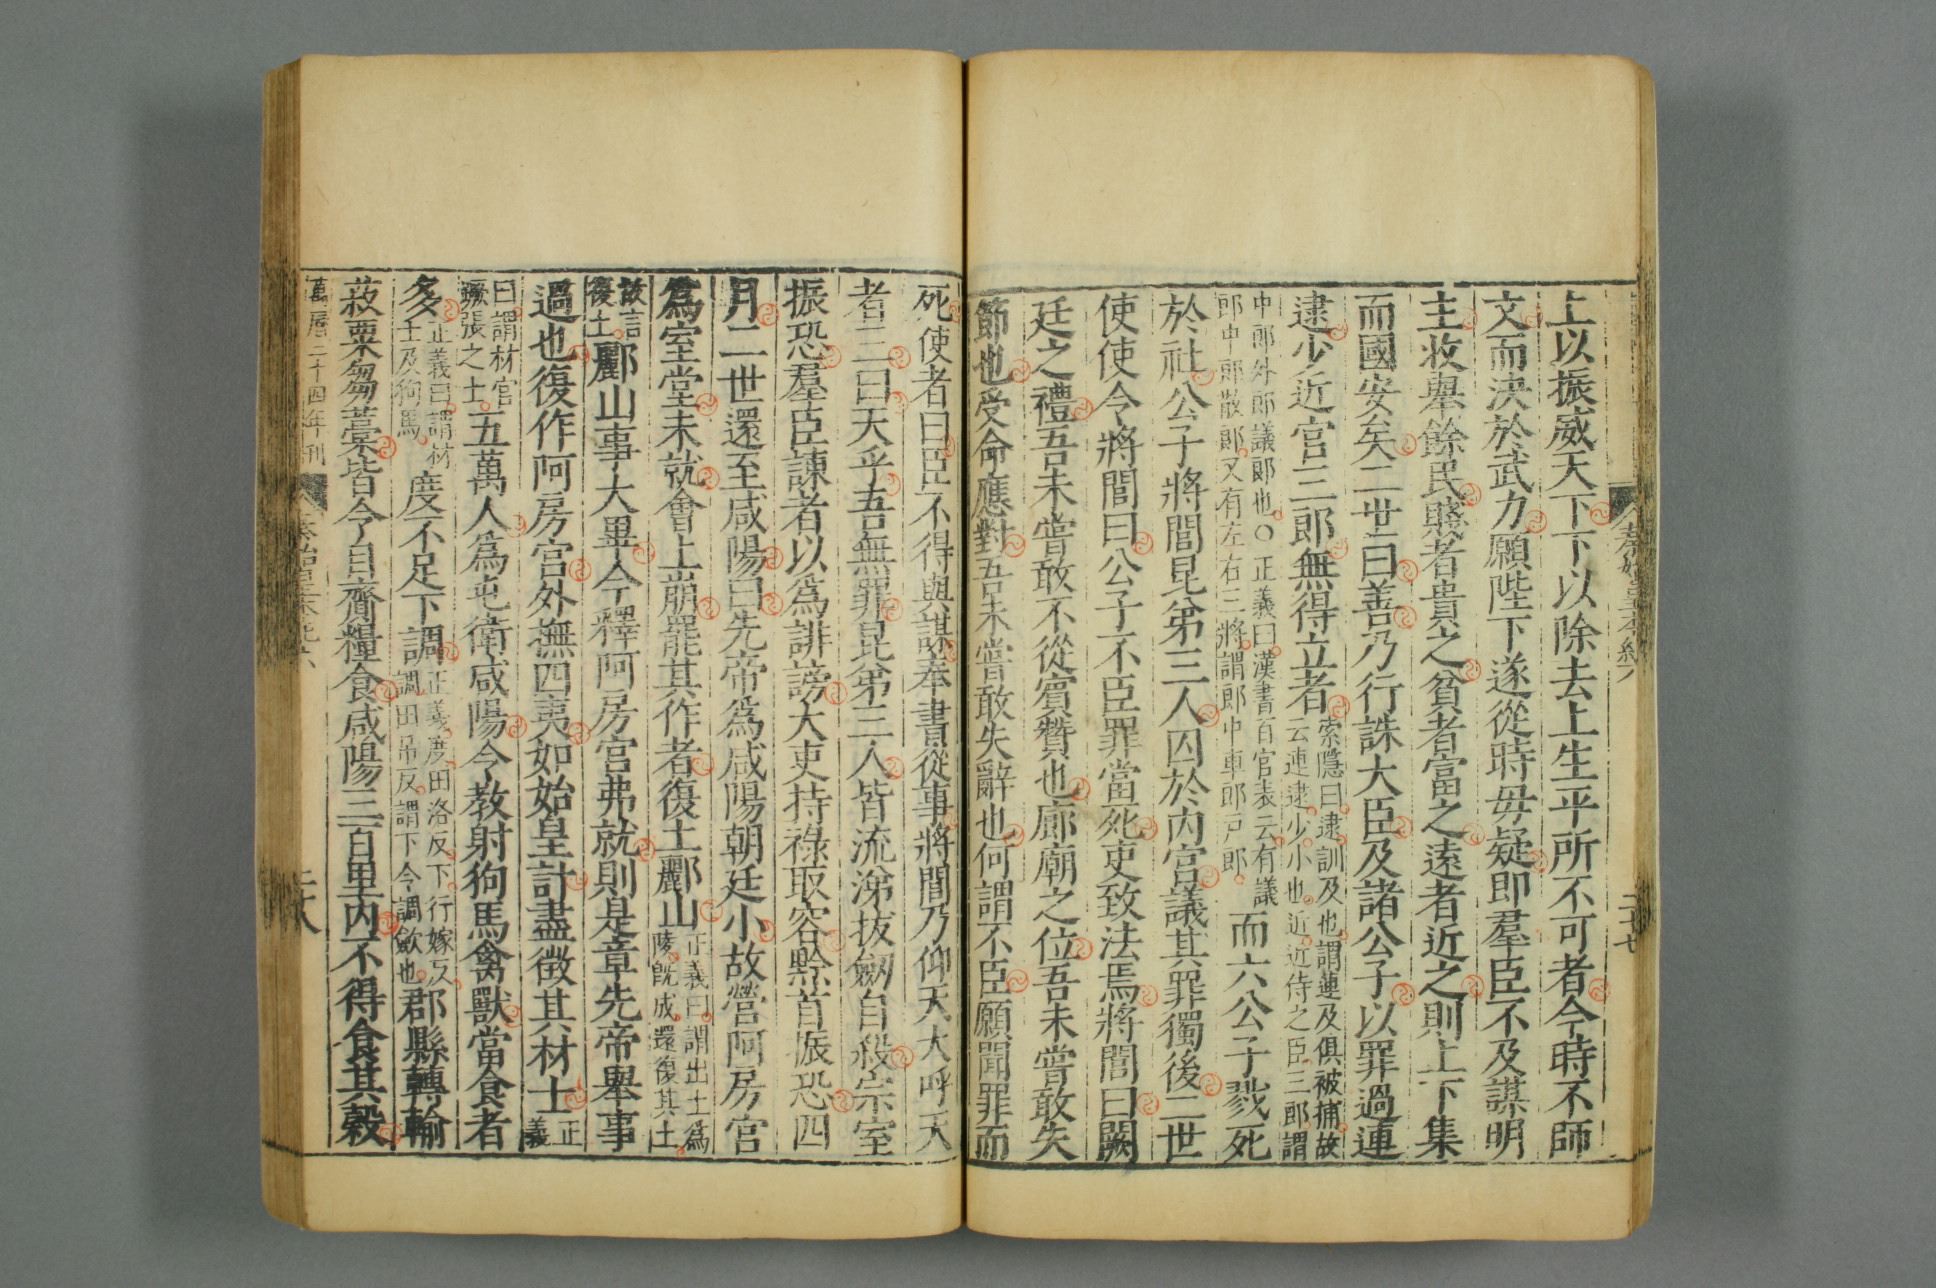 秦始皇本紀六
二十七
上以振威天下下以除去上生平所不可者今時不師
文而決於武力願陛下遂從時毋疑即羣臣不及謀明
主收舉餘民賤者貴之貧者富之遠者近之則上下集
而國安矣二世曰善乃行誅大臣及諸公子以罪過連
逮少近官三郎無得立者
索隱曰逮訓及也謂連及俱被捕故
云連逮少小也近近侍之臣三郎謂
中郎外郎議郎也○正義曰漢書百官表云有議
郎中郎散郎又有左右三將謂郎中車郎戸郎
而六公子戮死
於社公子將閭昆弟三人囚於内宮議其罪獨後二世
使使令將閭曰公子不臣罪當死吏致法焉將閭曰闕
廷之禮吾未嘗敢不從賓贊也廊廟之位吾未嘗敢失
節也受命應對吾未嘗敢失辭也何謂不臣願聞罪而
死使者曰臣不得與謀奉書從事將閭乃仰天大呼天
者三曰天乎吾無罪昆弟三人皆流涕拔劔自殺宗室
振恐羣臣諫者以爲誹謗大吏持祿取容黔首振恐四
月二世還至咸陽曰先帝爲咸陽朝廷小故營阿房宮
爲室堂未就會上崩罷其作者復土酈山
正義曰謂出土爲
陵既成還復其土
故言
復土
酈山事大畢今釋阿房宮弗就則是章先帝舉事
過也復作阿房宮外撫四夷如始皇計盡徵其材士
正
義
曰謂材官
蹶張之士
五萬人爲屯衛咸陽令教射狗馬禽獸當食者
多
正義曰謂材
士及狗馬
度不足下調
正義度田洛反下行嫁反
調田吊反謂下令調斂也
郡縣轉輸
菽粟芻藁皆令自齎糧食咸陽三百里内不得食其穀
萬曆二十四年刊
秦始皇本紀六
二十八